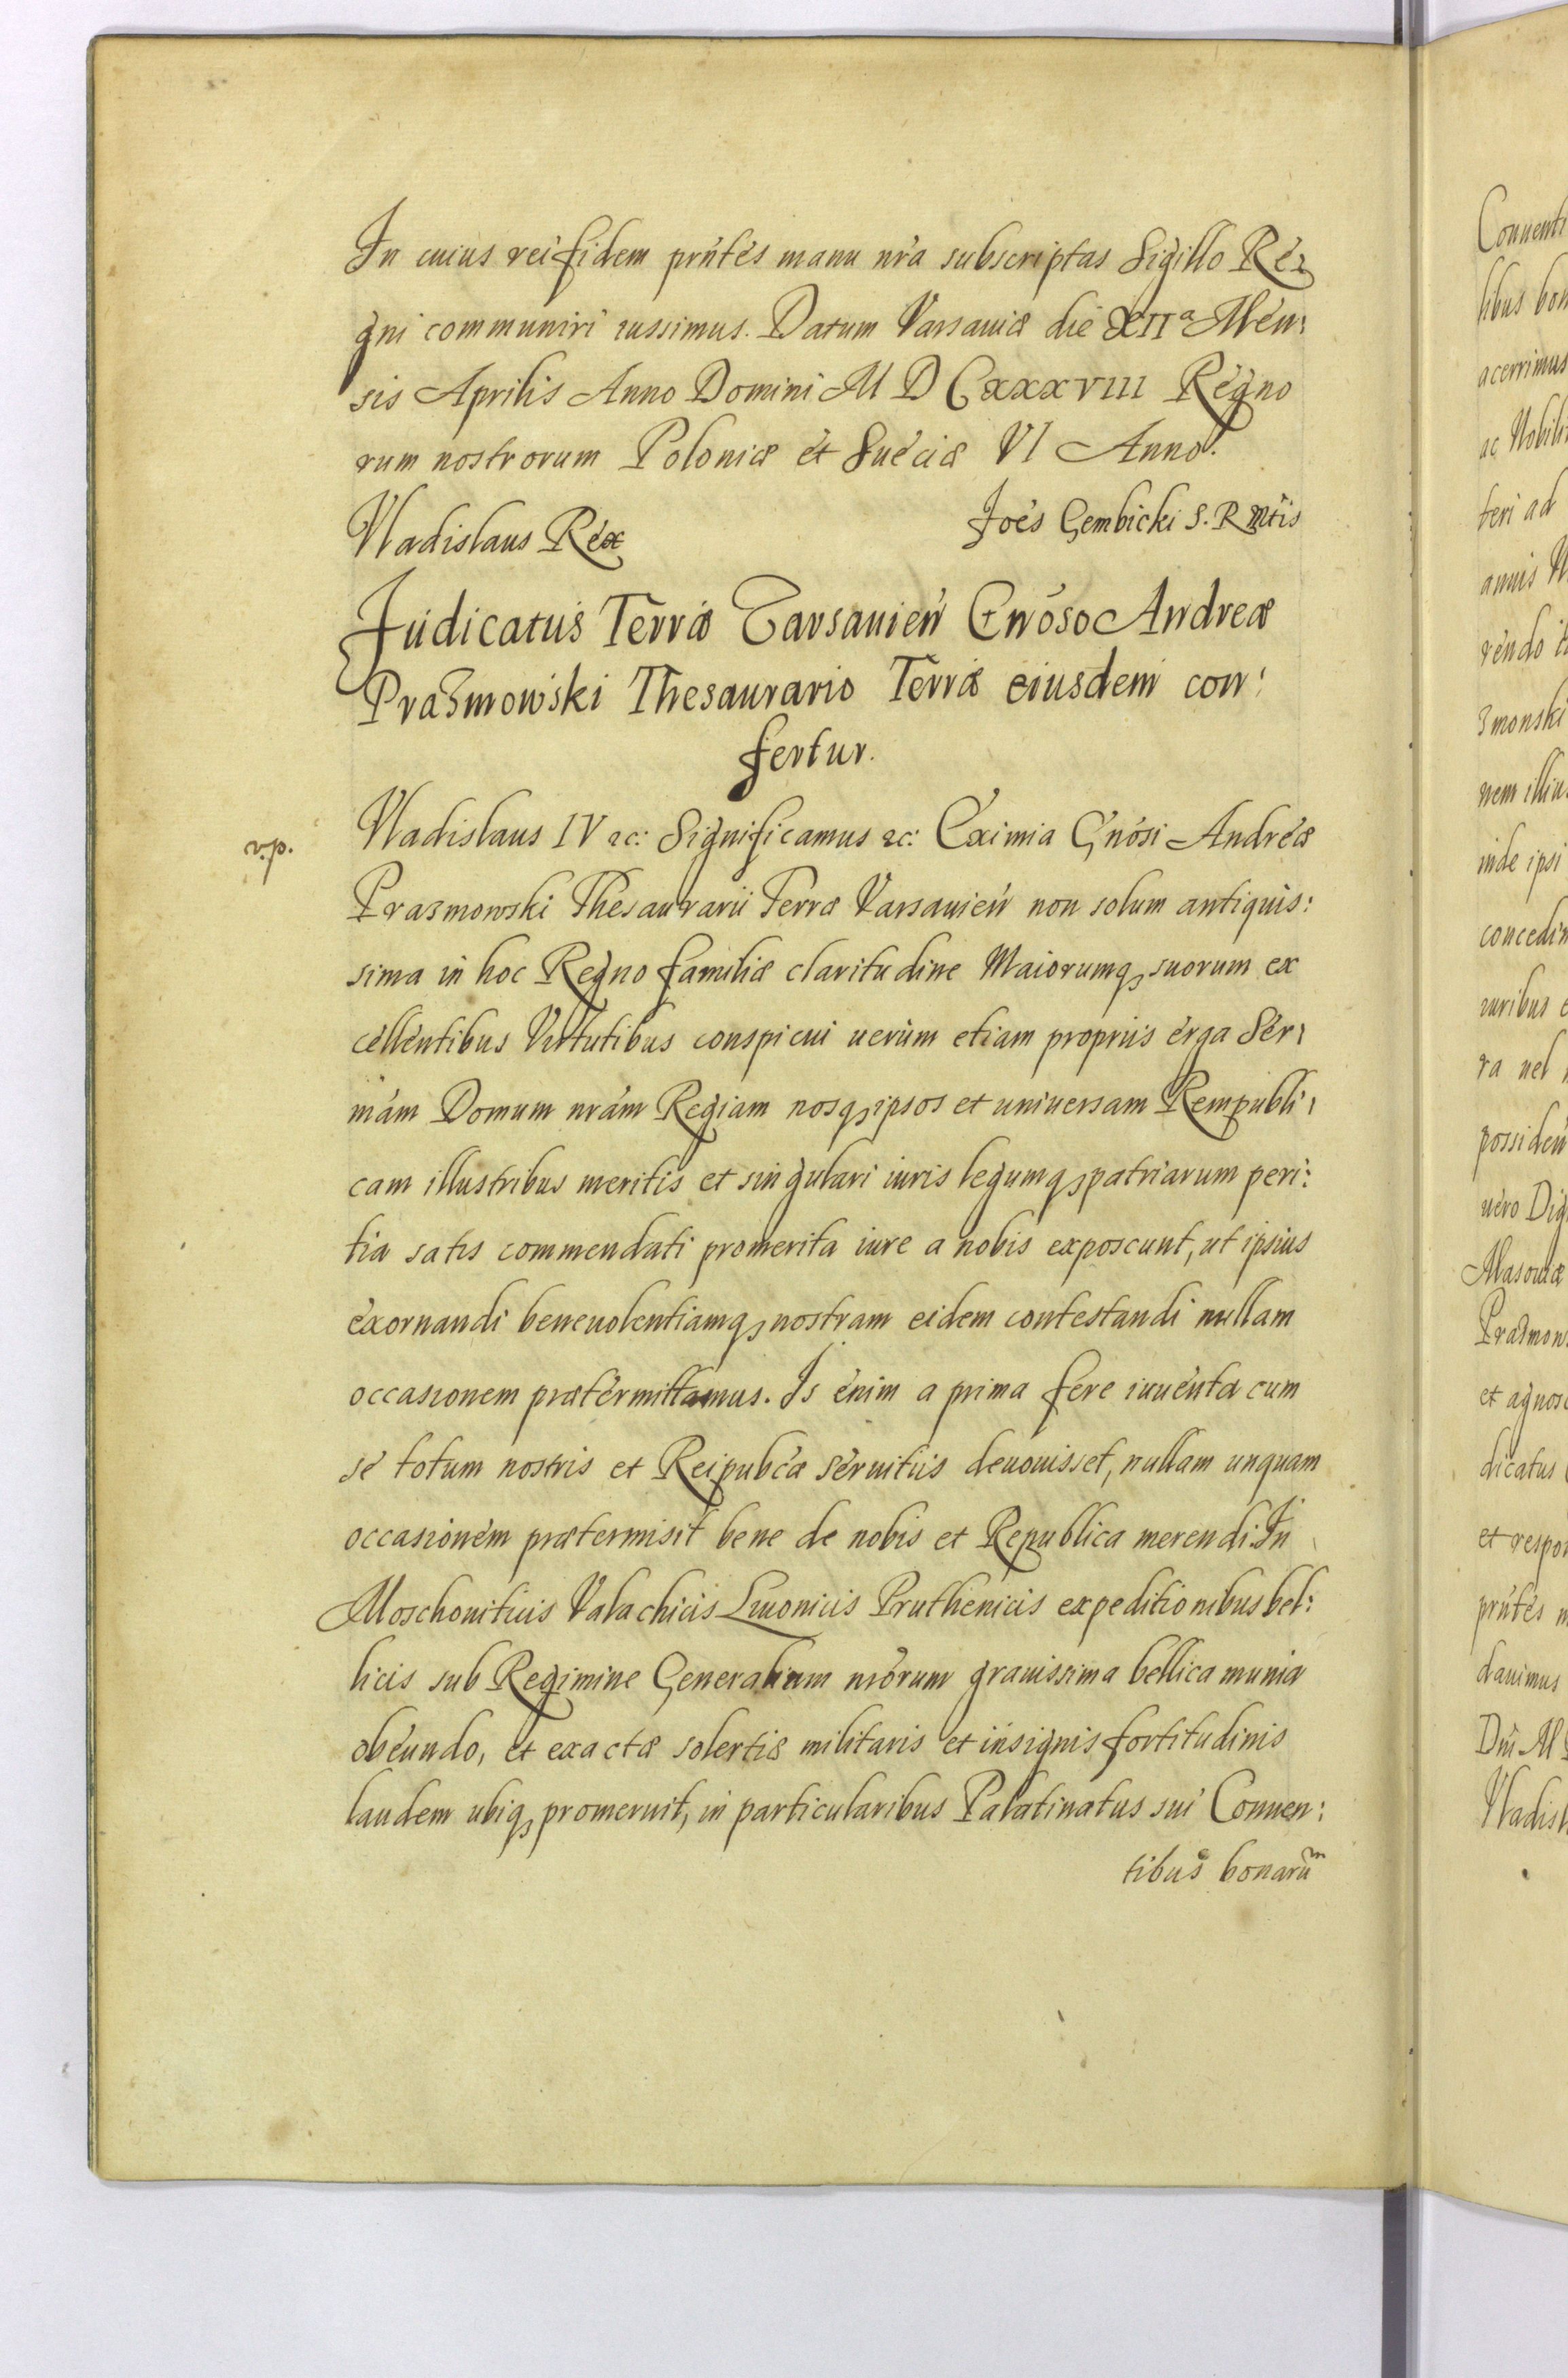 In cuius rei fidem prńtes manu nrá subscriptas Sigillo Re:
gni communiri iussimus. Datum Varsaviæ die XIIª Men:
sis Aprilis Anno Domini M D CXXXVIII Regno
rum nostrorum Poloniæ et Sueciæ VI Anno.
Vladislaus Rex
Joés Gembicki S. R Mtis
Judicatus Terræ Varsavień Gnóso Andreæ
Prazmowski Thesaurario Terræ eiusdem con:
fertur.
v.p.
Vladislaus IV ac: Significamus ac: Eximia Gnósi Andreæ
Prazmowski Thesaurarii Terræ Varsavień non solum antiquis:
sima in hoc Regno familiæ claritudine Maiorumq suorum ex
cellentibus Virtutibus conspicui uerùm etiam propriis erga Ser:
mám Domum nrám Regiam nosq ipsos et uniuersam Rempubli:
cam illustribus meritis et singulari iuris legumq patriarum peri:
tia satis commendati promerita iure a nobis exposcunt, ut ipsius
exornandi beneuolentiamq nostram eidem contestandi nullam
occasionem prætermittamus. Is enim a prima fere iuuenta cum
se totum nostris et Reipubcæ seruitiis deuouisset, nullam unquam
occasionem prætermisit bene de nobis et Republica merendi. In
Moschouiticis Valachicis Liuonicis Pruthenicis expeditionibus bel:
licis sub Regimine Generalium nrórum grauissima bellica munia
obeundo, et exactæ solertiæ militaris et insignis fortitudinis
laudem ubiq promeruit, in particularibus Palatinatus sui Conuen:
tibus bonarum
Conuenti
libus bon
acerrimus
ac Nobili
teri ad
annis
rendo
zmonski
nem illius
inde ipsi
concedim
iuribus
ra uel
possideń
uero Dig
Masouiæ
Prazmow
et agnos
dicatus
et respo
prńtes
dauimus
Dńi M
Vladisl